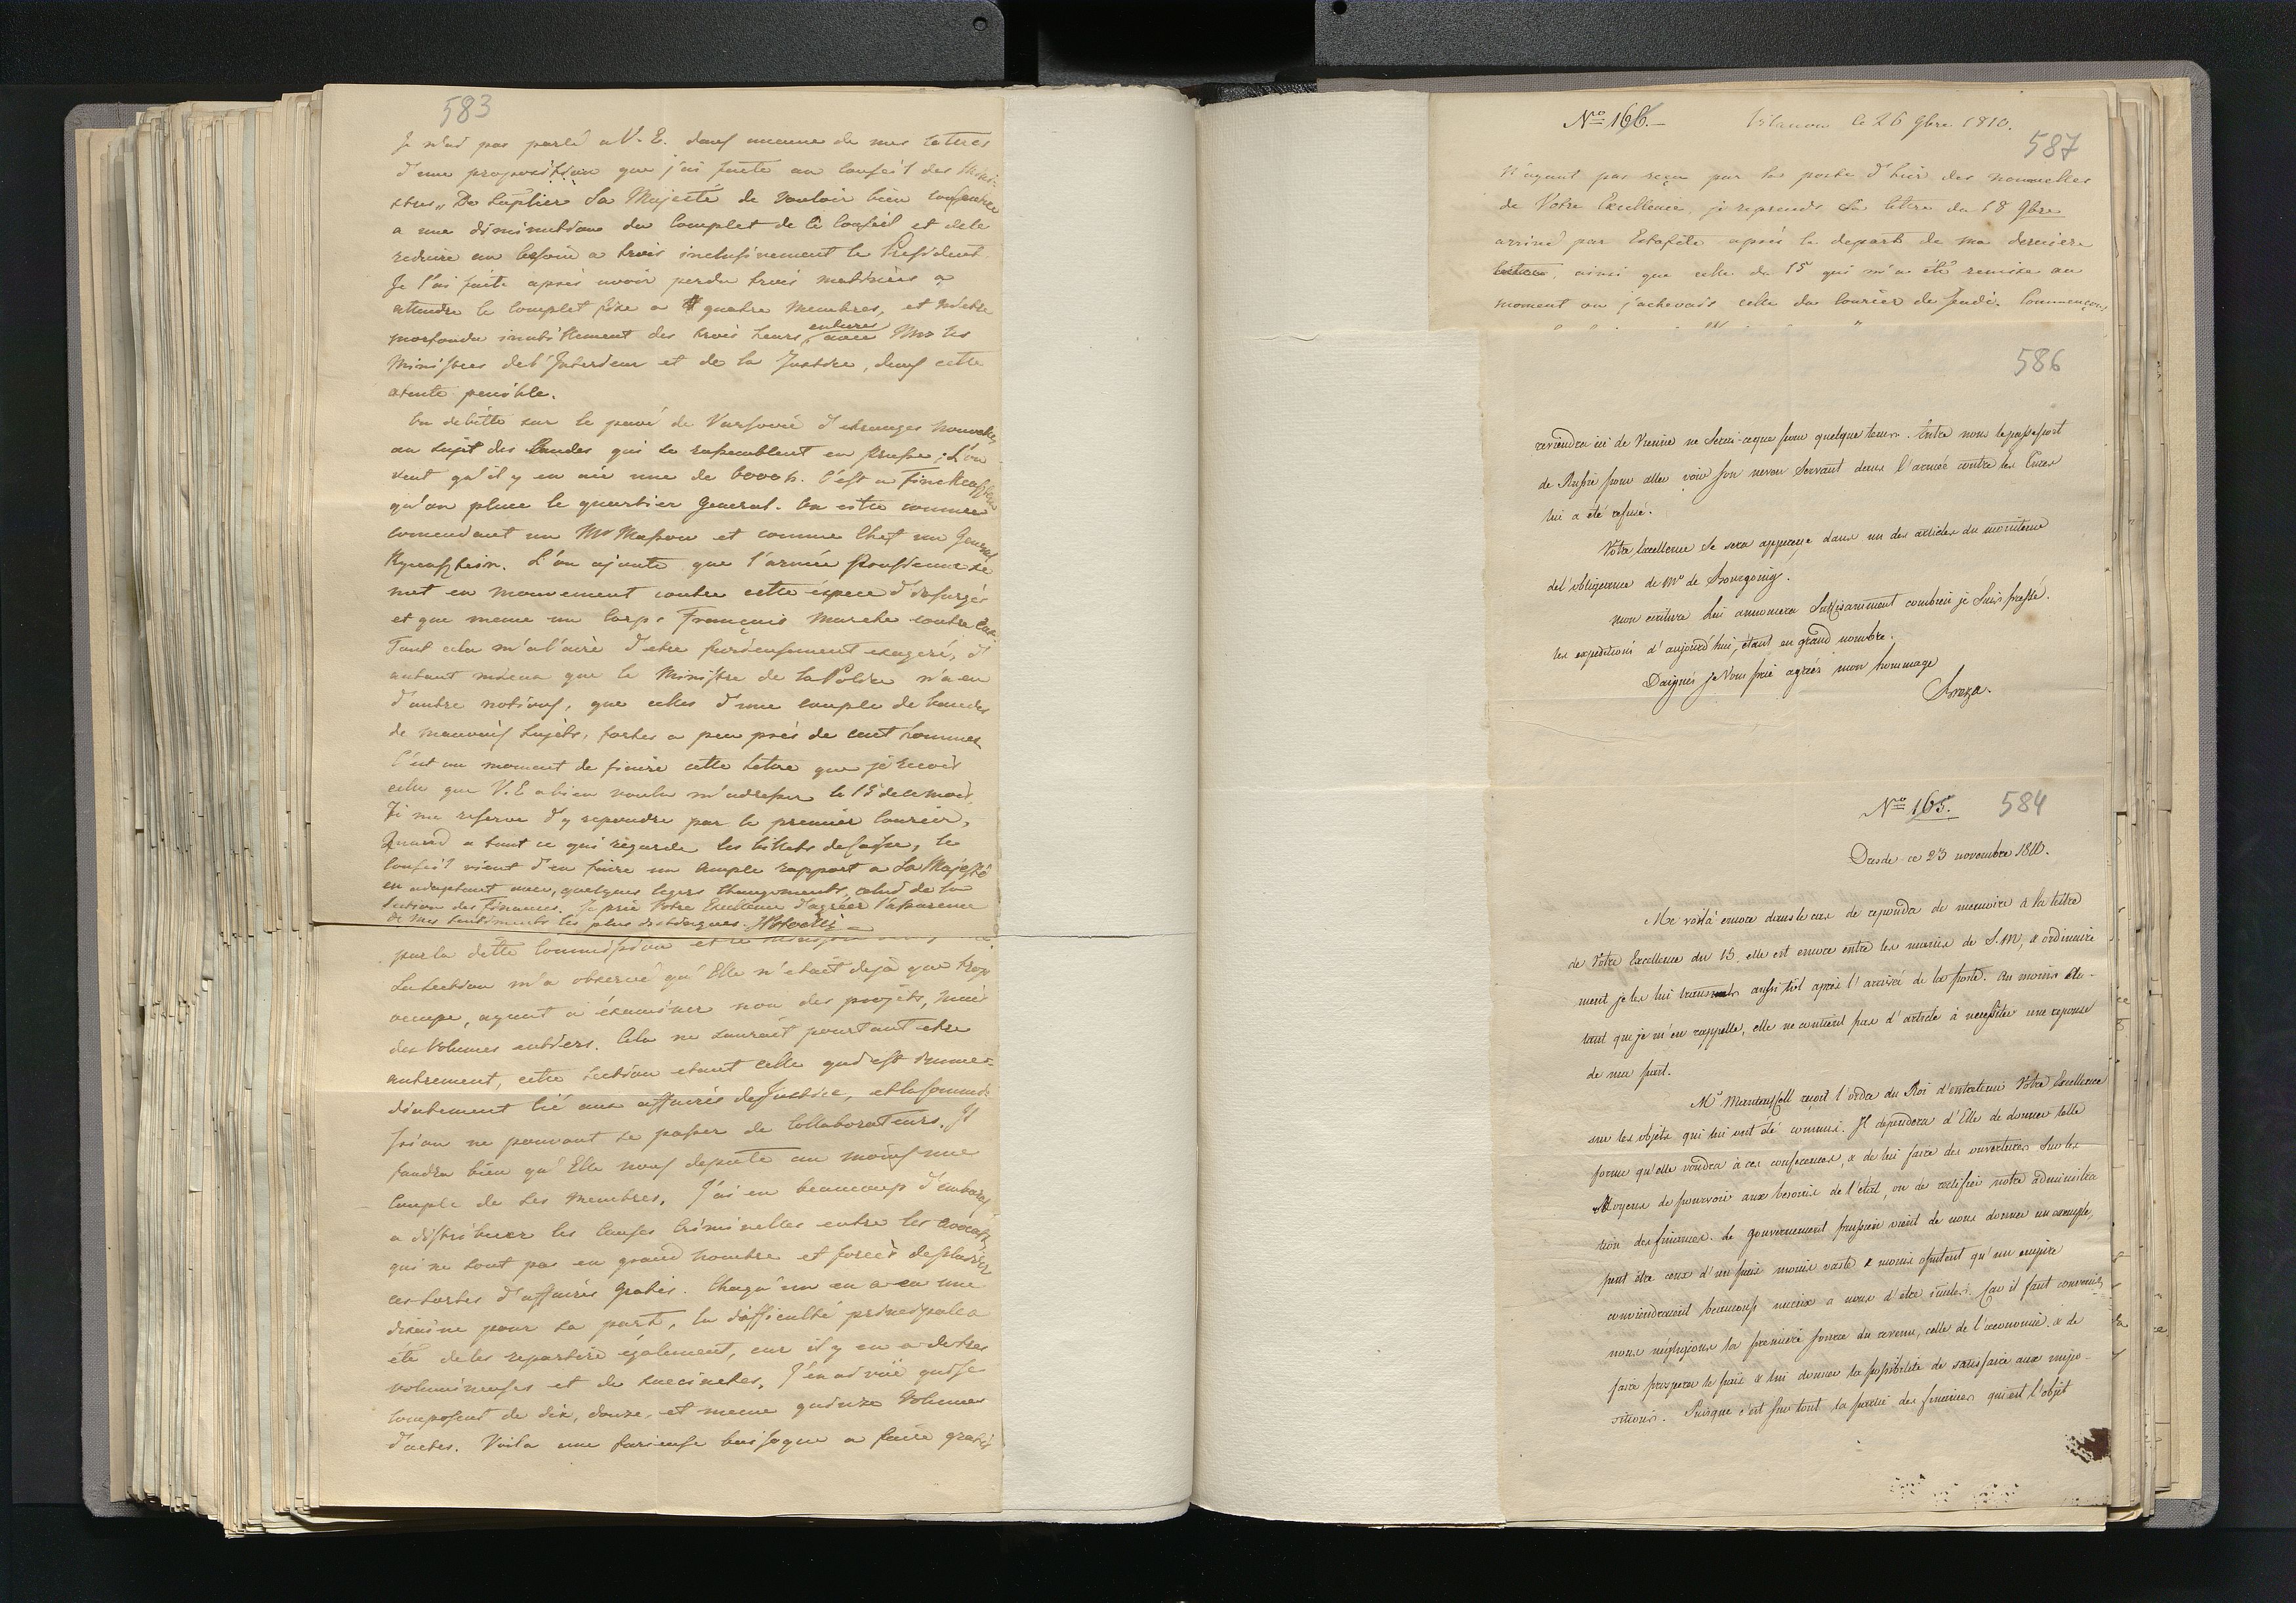 583
Je n'ai pas parlé a V. E. dans aucune de mes lettres
d'une proposition que j'ai faite au Conseil des Mini-
stres, De suplier Sa Majesté de vouloir bien consentir
a une diminution du Complet de ce Conseil et de le
reduire au besoin a trois inclusivement le President.
Je l'ai faite après avoir perdu trois matinées a
attendre le complet fixé a quatre Membres, et m'etre
morfondu inutillement des trois heurs entieres avec Mrs les
Ministres de l'Interieur et de la Justice, dans cette
atente penible.
On debitte sur le pavé de Varsovie d'etranges nouvelles
au sujet des Bandes qui se rassemblent en Prusse; L'on
veut qu'il y en aie une de 6000 h. C'est a Finckenstein
qu'on place le quartier General. On cite comme
comendant un Mr Masson et comme Chef un General
L'on ajoute que l'armée Prussienne se
met en mouvement contre cette éspece d'insurgés
et que meme un Corps François marche contre eux.
Tout cela m'a l'air d'etre furieusement exageré, d'
autant mieux que le Ministre de la Police n'a eu
d'autre notions, que celles d'une couple de bandes
de mauvais sujets, fortes a peu près de cent hommes
C'est au moment de finire cette lettre que je recois
celle que V. E. a bien voulu m'adresser le 15 de ce mois,
Je me reserve d'y repondre par le premier Courier,
Quand a tout ce qui regarde les billets de Caisse, le
Conseil vient d'en faire un ample rapport a Sa Majesté
en adoptant avec quelques legers changements, celui de la
Section des Finances. Je prie Votre Excellence d'agréer l'assurance
de mes sentiments les plus distingués. SPotocki
par la ditte Commission et le
La Section m'a observé qu'Elle n'etait dejà que trop
occupe, ayant a éxaminer non des projets, mais
des Volumes entiers. Cela ne saurait pourtant etre
autrement, cette Section etant celle qui est imme-
diatement lié aux affaires de Justice, et la Commi-
ssion ne pouvant se passer de Collaborateurs. Il
faudra bien qu'Elle nous depute au moins une
Couple de ses Membres. J'ai eu beaucoup d'embaras
a distribuer les Causes Criminelles entre les avocats
qui ne sont pas en grand nombre et forcés de plaider
ces sortes d'affaires gratis. Chaqu'un en a eu une
dixaine pour sa part, la difficulté principale a
été de les repartire également, car il y en a de tres
volumineuses et de succinctes, J'en ai vüe qui se
composent de dix, douze, et meme quinze Volumes
d'actes. Voila une furieuse besogne a faire gratis
No 166.
Vilanow le 26 9bre 1810.
587
N'ayant pas reçu par la poste d'hier des nouvelles
de Votre Excellence, je reprends Sa lettre du 18 9bre
arrivé par Estafete après le depart de ma derniere
ainsi que celle du 15 qui m'a été remise au
moment ou j'achevais celle du Courier de Jeudi. Commençons
586
reviendra ici de Vienne ne serai-ceque pour quelque tems. Entre nous le passeport
de Russie pour aller voir son neveu servant dans l'armée contre les Turcs
lui a été refusé.
Votre Excellence se sera apperçue dans un des articles du moniteur
de l'obligeance de Mr de Bourgoing.
mon ecriture lui annoncera suffisamment combien je suis pressé.
les expeditions d'aujourd'hui, étant en grand nombre.
Daignés je Vous prie agréér mon hommage
Breza.
No 165.
584
Dresde ce 23 novembre 1810.
Me voilà encore dans le cas de repondre de memoire à la lettre
de Votre Excellence du 15, elle est encore entre les mains de S. M, & ordinaire
ment je les lui transmets aussi tôt après l'arrivée de la poste. Au moins au-
tant que je m'en rappelle, elle ne contient pas d'article à necessiter une reponse
de ma part.
Mr Manteuffell reçoit l'ordre du Roi d'entretenir Votre Excellence
sur les objets qui lui ont été commis. Il dependera d'Elle de donner telle
forme qu'elle voudra à ces conferences, & de lui faire des ouvertures sur les
Moyens de pourvoir aux besoins de l'état, ou de rectifier notre administra
tion des finances. Le gouvernement prussien vient de nous donner un exemple,
peut être ceux d'un païs moins vaste & moins opulent qu'un empire
conviendraient beaucoup mieux a nous d'être imités. Car il faut convenir,
nous négligeons la premiere source du revenu, celle de l'oeconomie, & de
faire prosperer le païs & lui donner la possibilité de satisfaire aux impo-
sitions. Puisque c'est sur tout la partie des finances qui est l'objet